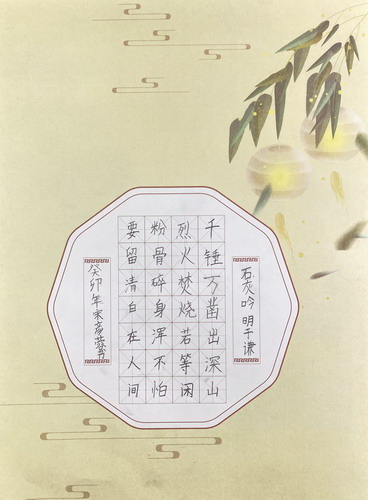 石灰吟 明 于谦
千锤万凿出深山
烈火焚烧若等闲
粉骨碎身浑不怕
要留清白在人间
癸卯年末